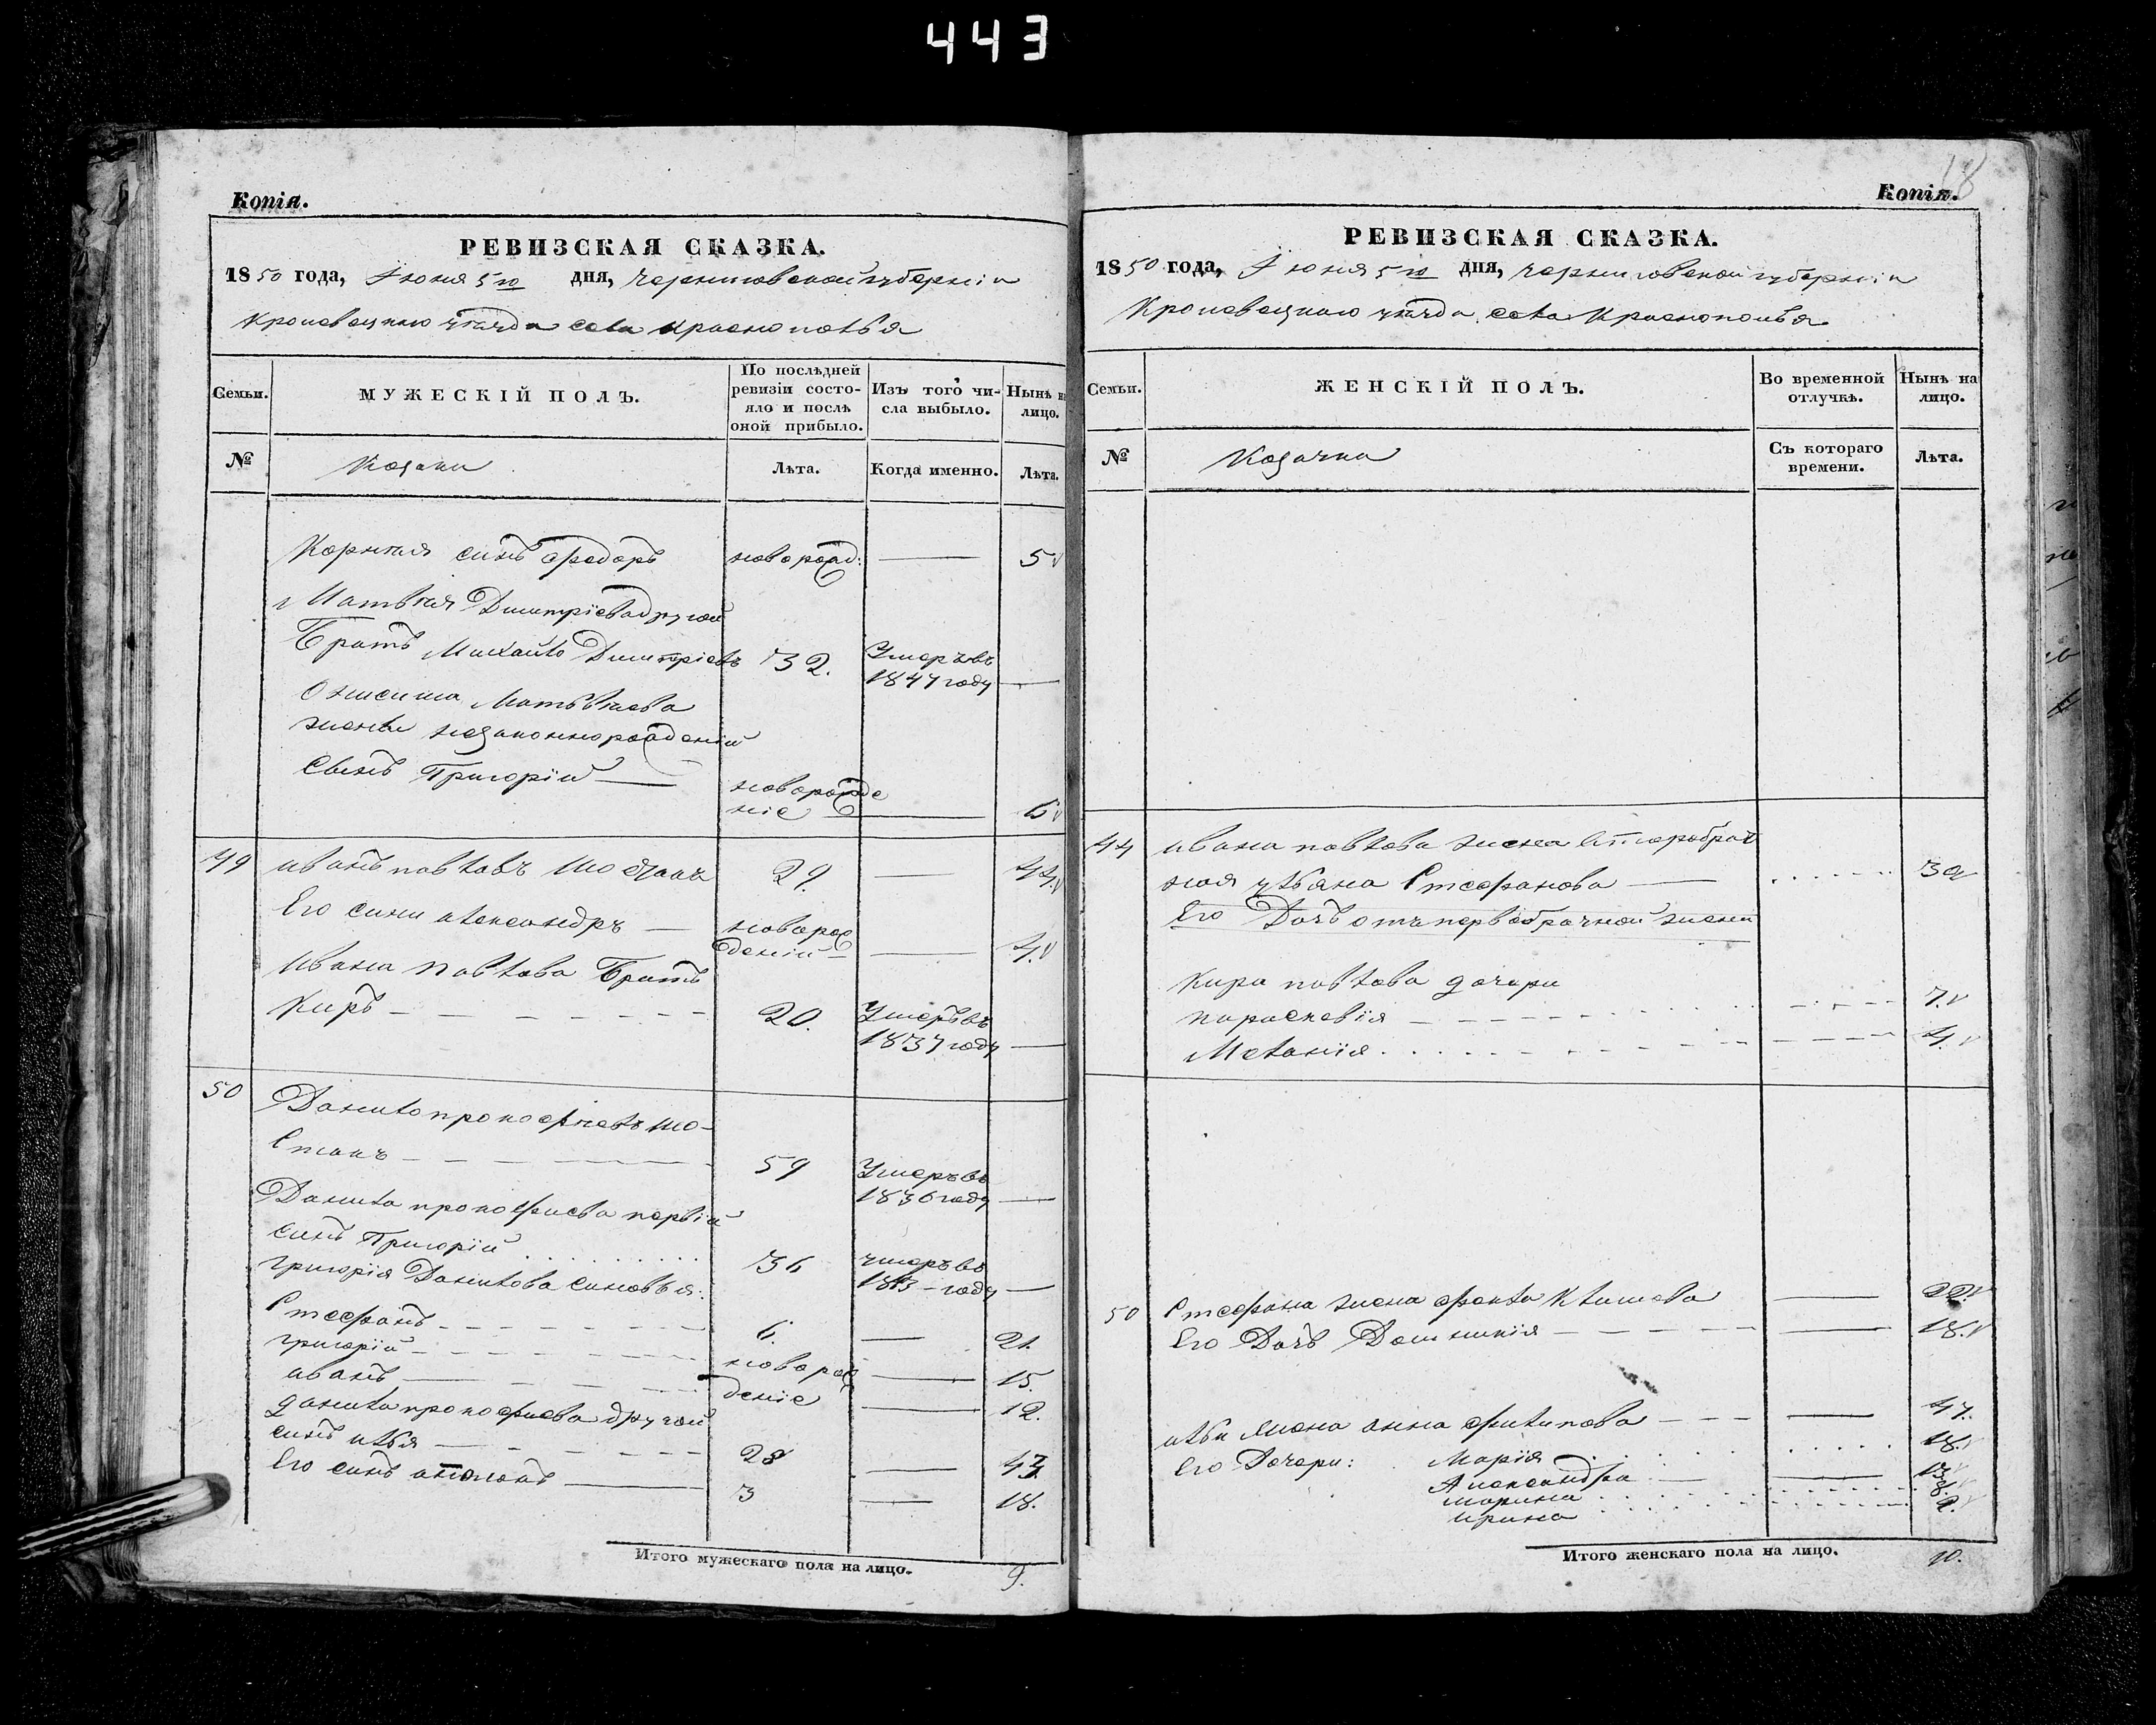 443
Копія.
РЕВИЗСКАЯ СКАЗКА.
1850 года, Июня 5го дня, Черниговской губерніи
Кролевецкаго уѣзда села Краснополья
Семьи.
МУЖЕСКІЙ ПОЛЪ.
По послѣдней ревизіи состояло и послѣ оной прибыло.
Изъ того числа выбыло.
Нынѣ на лицо.
№
Козаки
Лѣта.
Когда именно.
Лѣта.
Корнѣя синъ Федоръ новорожд: 5
Матвѣя Дмитріева другой
Братъ Михайло Дмитріевъ 32. Умеръ въ
1847 году
Онисима Матвѣева
жены незаконнорожденій
Сынъ Григорій новорожде
ніе 6
49 Иванъ Павловъ 29. 44.
Его сини Александръ новорож
деній 4.
Ивана Павлова Братъ
Киръ 20. Умеръ въ
1837 году
50 Данило Прокофіевъ Шо-
станъ 59 Умеръ въ
1836 году
Данила Прокофіева первій
синъ Григорій 36 умеръ въ
году
Григорія Данилова синовья:
Стефанъ 6. 21.
Григорій новорож 15.
Иванъ деніе 12.
Данила Прокофіева другой
синъ Илья 28 43.
Его синъ 3 18.
Итого мужескаго пола на лицо. 9.
18
Копія.
РЕВИЗСКАЯ СКАЗКА.
1850 года, Июня 5го дня, Черниговской губерніи
Кролевецкаго уѣзда, села Краснополья
Семьи.
ЖЕНСКІЙ ПОЛЪ.
Во временной отлучкѣ.
Нынѣ на лицо.
№
Козачки
Съ котораго времени.
Лѣта.
Ивана Павлова жена второбрач
ная Ульяна Стефанова 39
Его Дочь отъ первобрачной жени
Кира Павлова дочери
Параскевія 7.
Меланія 4.
50 Стефана жена Фекла Климова 22
Его Дочь Домникія 18.
Ильи жена Анна Филипова 47.
Его Дочери: Марія 18.
Александра 13
Марина 8.
Ирина 2.
Итого женскаго пола на лицо. 10.